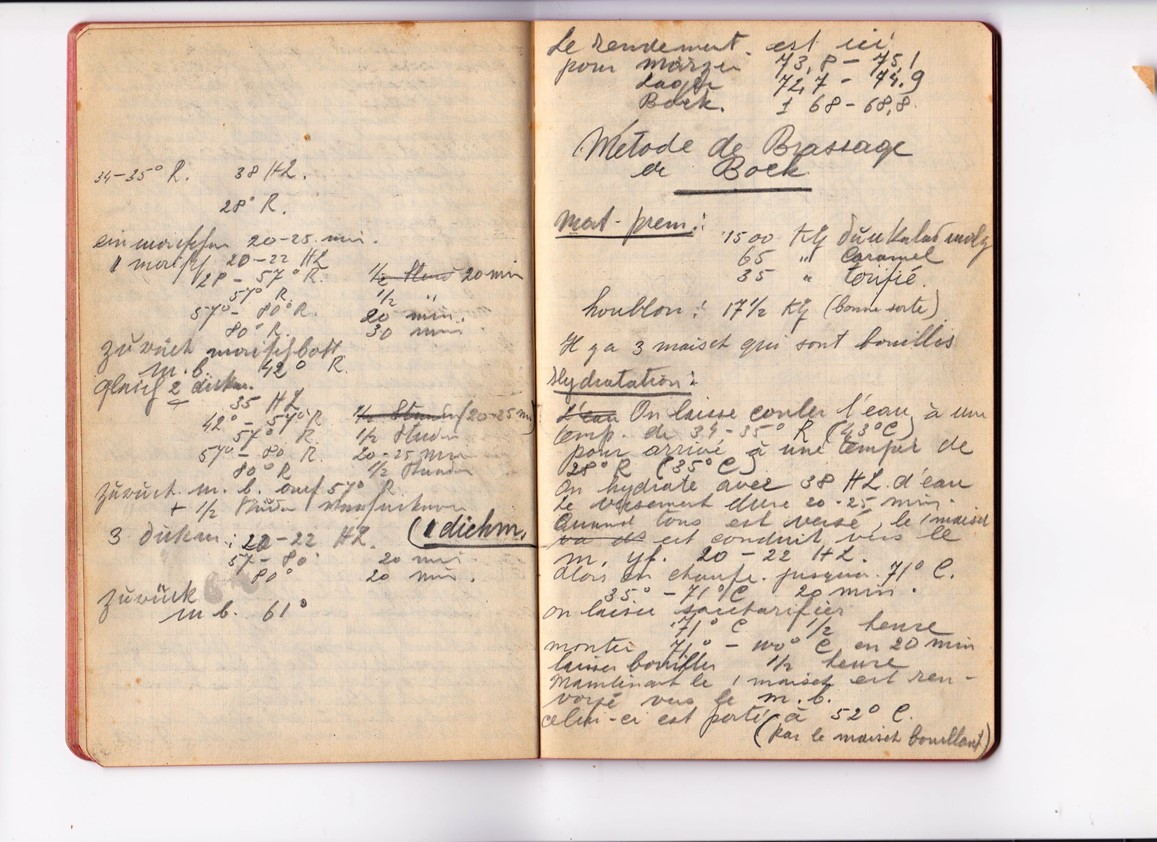 34-35° R. 38 HL.
28° R.
einmaischen 20-25 min.
1 maisch 20-22 HL
28 - 57° R. ½ Stund 20 min
57° R. ½ "
57° - 80° R. 20 min.
80° R. 30 min.
zurück maischbott
m. b. 42° R.
gleich 2 dickm.
35 HL
42° - 57° R ½ Stunde (20-25 m)
57° R. ½ Stunde
57° - 80 R. 20-25 min
80° R ½ Stunde
zurück m. b. auf 57° R.
+ ½ Stunde
3 dickm: 20-22 HL. (1 dickm.
57 - 80. 20 min.
80° 20 min.
zurück
m b. 61°
Le rendement est ici
pour märzen 73,8 - 75,1
Lager 72,7 - 74.9
Bock. 1 68 - 68,8.
Métode de Brassage
de Bock
mat-prem:
1500 KG dunkelmalz
65 " Caramel
35 " torifié.
houblon: 17½ KG (bonne sorte)
Il y a 3 maisch qui sont bouillis
Hydratation:
L'eau On laisse couler l'eau à une
temp. de 34-35° R (43°C)
pour arrivé à une tempér de
28° R (35° C)
On hydrate avec 38 HL. d'eau
Le versement dure 20-25 min.
Quand tous est versé, le 1 maisch
va ds est conduit vers le
m. pf. 20-22 HL.
Alors on chauffe jusqua 71° C.
35° - 71° C 20 min.
on laisse saccharifier
71° C ½ heure
monter 71° - 100° C en 20 min
laisser bouillir ½ heure
Maintinant le 1 maisch est ren-
versé vers le m. b.
celui-ci est porté à 52° C.
(par le maisch bouillant)